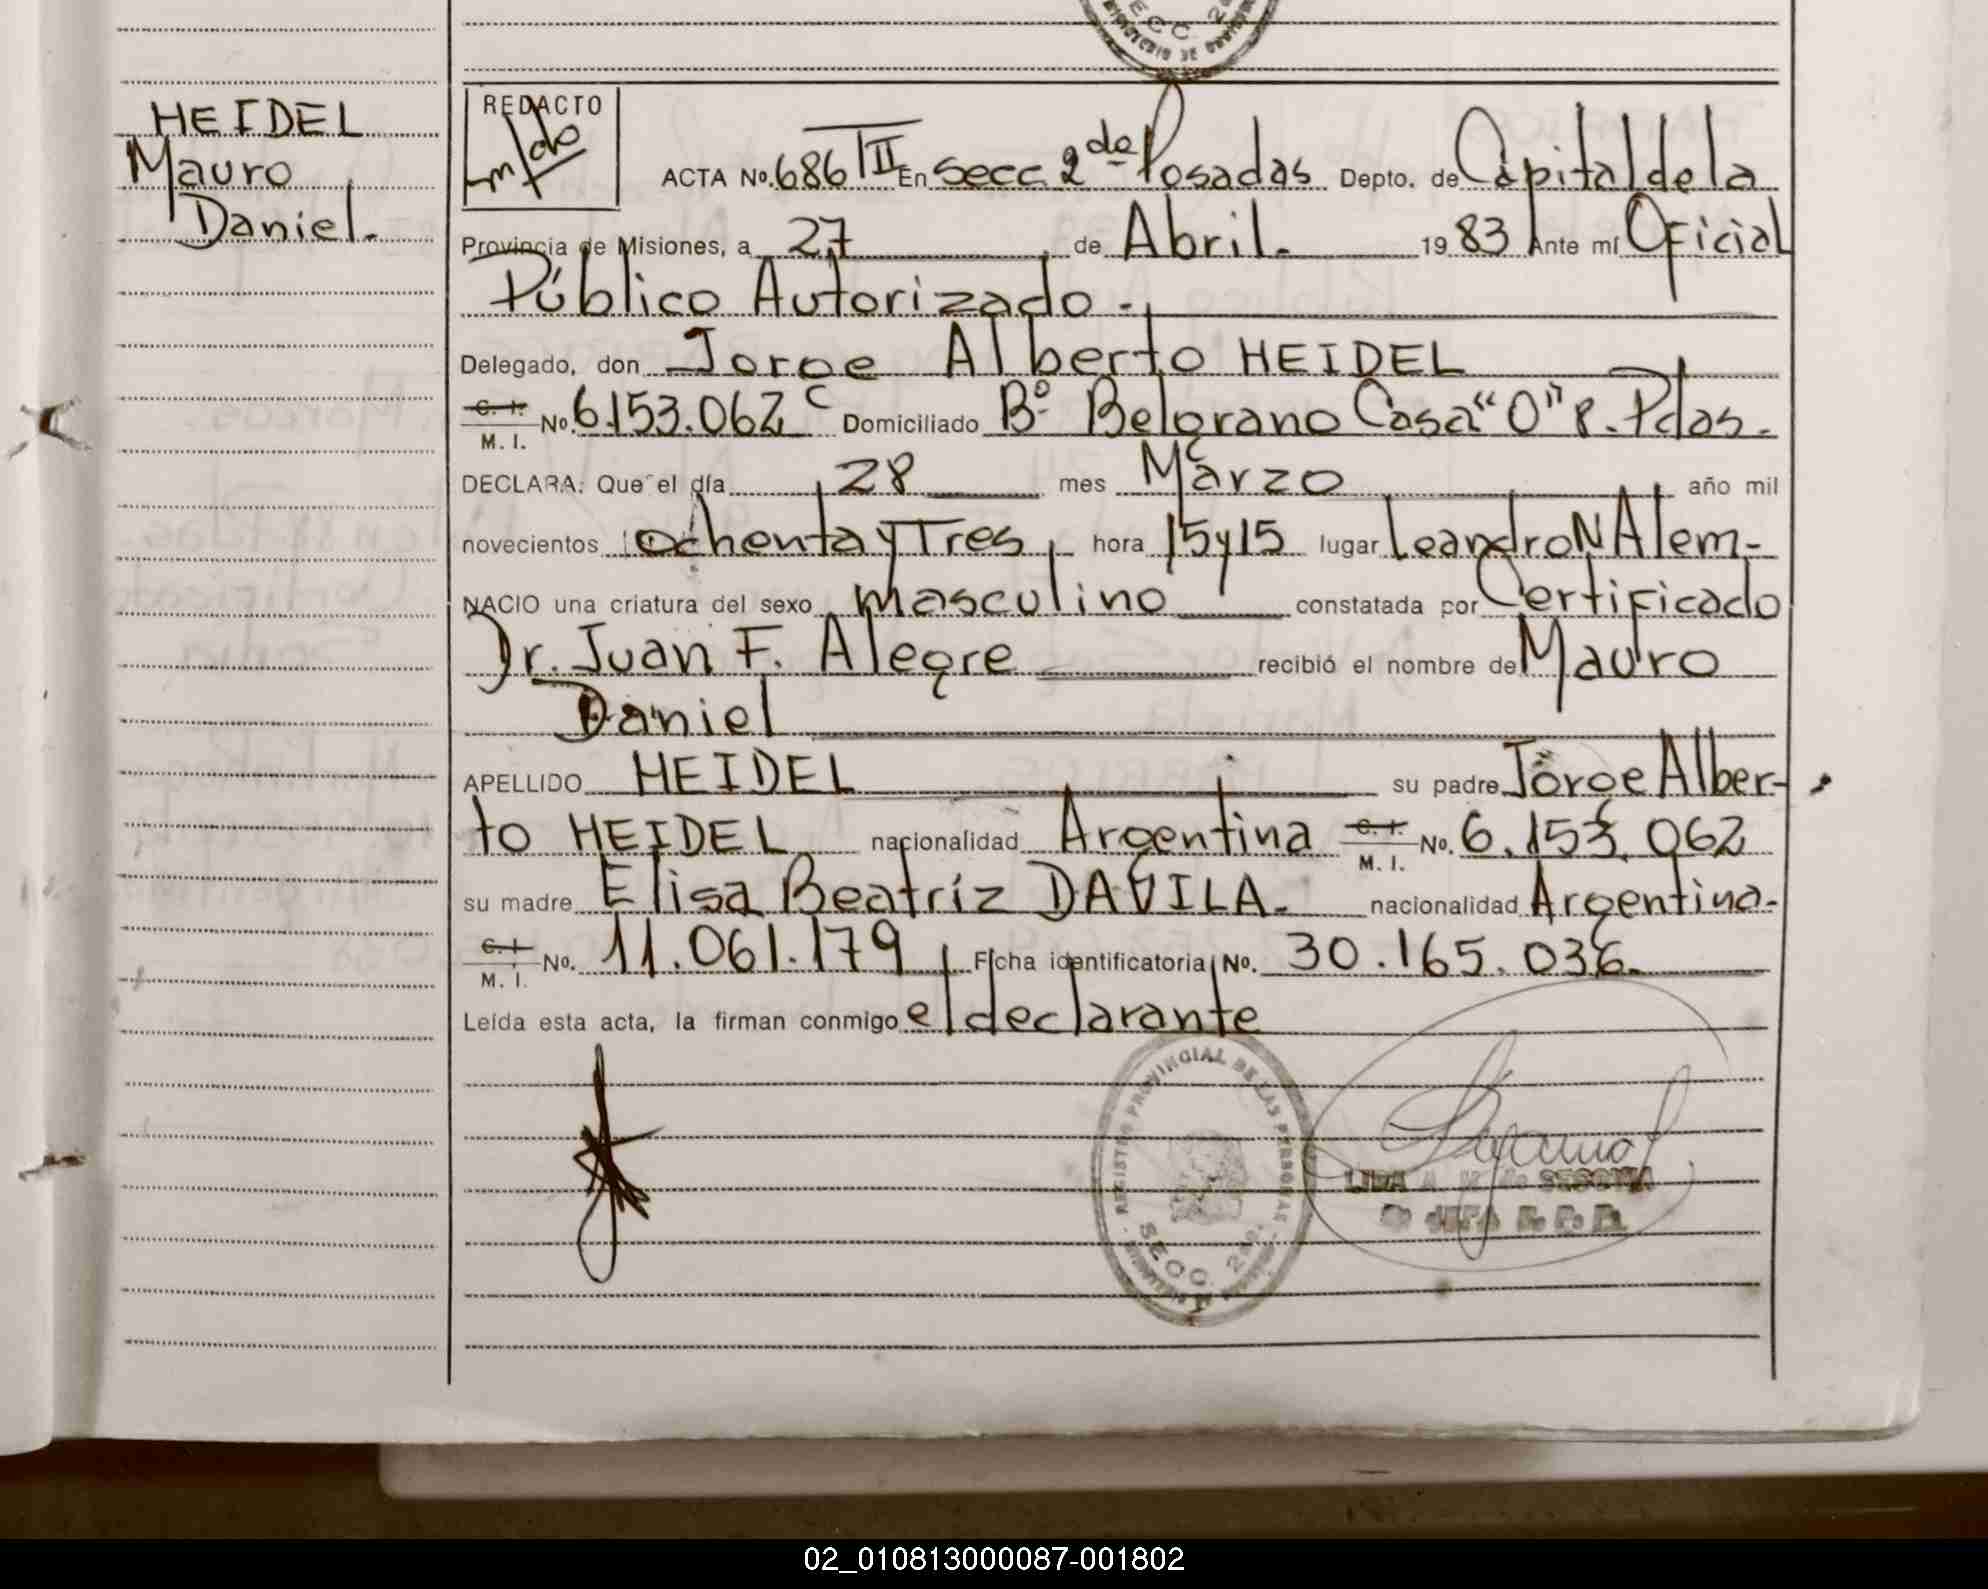 HEIDEL
Mauro
Daniel.
REDACTO
ACTA Nº. 686 TII En Secc. 2da Posadas Depto. de Capital de la
Provincia de Misiones, a 27 de Abril. 1983 Ante mí Oficial
Público Autorizado.
Delegado, don Jorge Alberto HEIDEL
C. I. M. I. Nº. 6.153.062 Domiciliado Bº Belgrano Casa "O" 8. Pdas.
DECLARA: Que el día 28 mes Marzo año mil
novecientos ochenta y Tres hora 15 y 15 lugar Leandro N Alem-
NACIO una criatura del sexo masculino constatada por Certificado
Dr. Juan F. Alegre recibió el nombre de Mauro
Daniel
APELLIDO HEIDEL su padre Jorge Alber-
to HEIDEL nacionalidad Argentina C. I. M. I. Nº. 6.153.062
su madre Elisa Beatríz DAVILA. nacionalidad Argentina.
C. I. M. I. Nº. 11.061.179 Ficha identificatoria Nº. 30.165.036.
Leída esta acta, la firman conmigo el declarante
REGISTRO PROVINCIAL DE LAS PERSONAS
SECC. 2da.
02_010813000087-001802